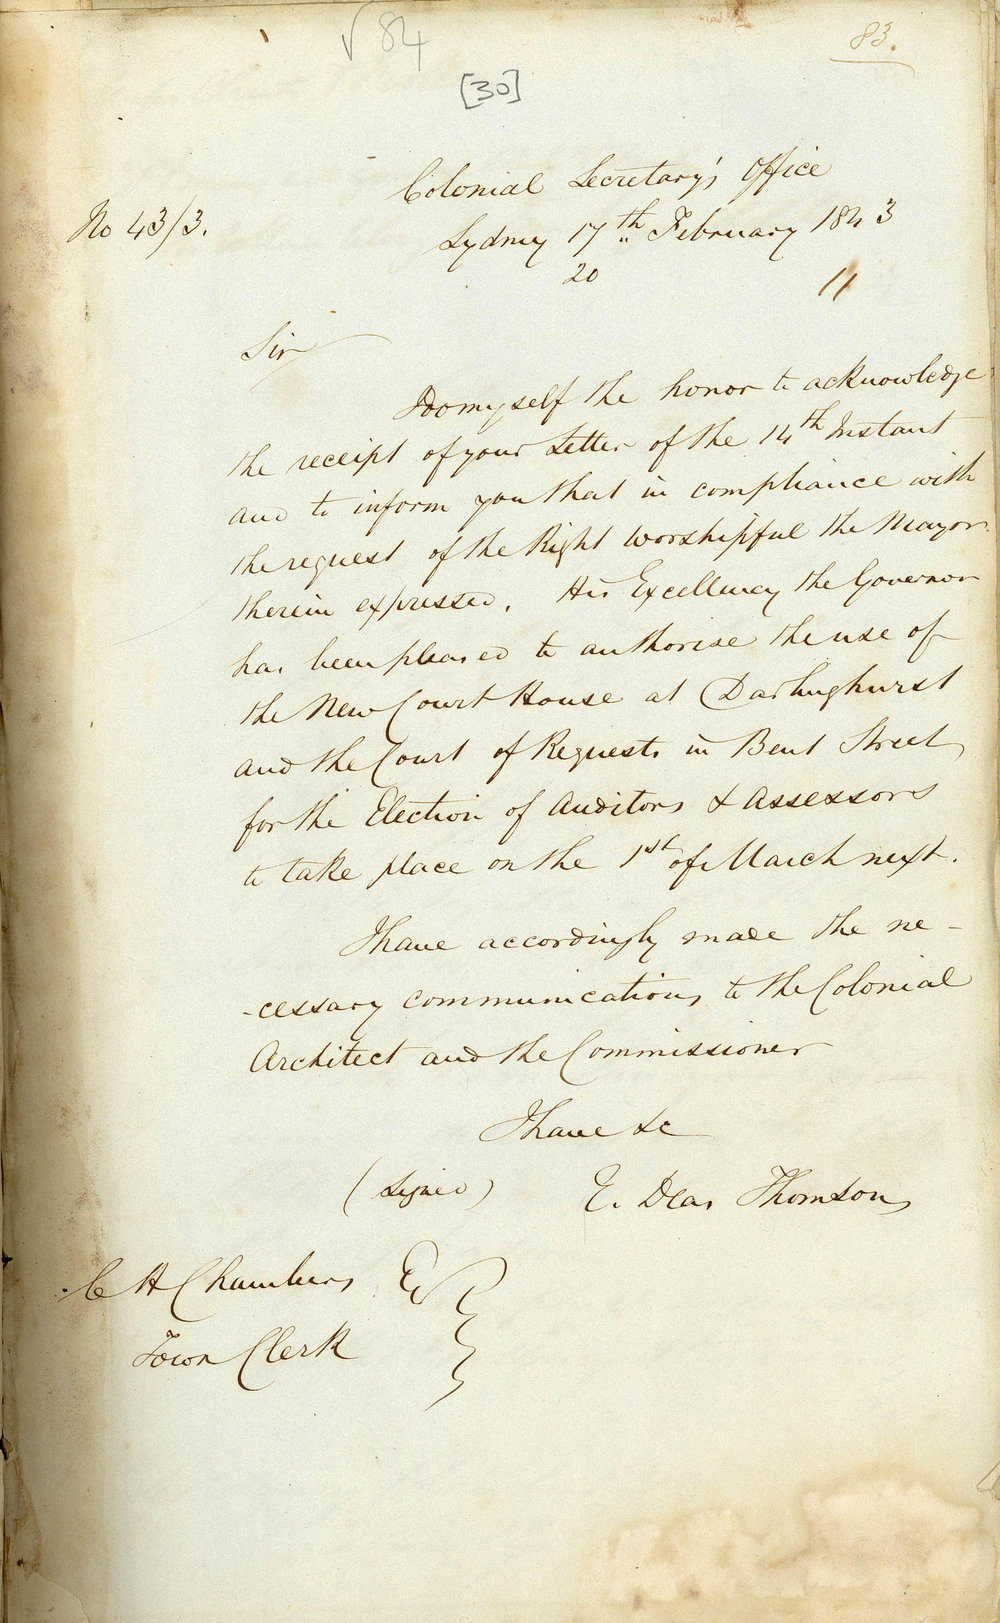 √84
83.
[30]
Colonial Secretary's Office
No 43/3.
Sydney 17th February 1843
20 11
Sir
I do myself the honor to acknowledge
the receipt of your Letter of the 14th Instant
and to inform you that in compliance with
the request of the Right Worshipful the Mayor
therein expressed. His Excellency the Governor
has been pleased to authorise the use of
the New Court House at Darlinghurst
and the Court of Requests in Bent Street,
for the Election of Auditors & Assessors
to take place on the 1st of March next.
I have accordingly made the ne-
-cessary communications to the Colonial
Architect and the Commissioner
I have &c
(Signed) E. Deas Thomson
C H Chambers Esq
Town Clerk